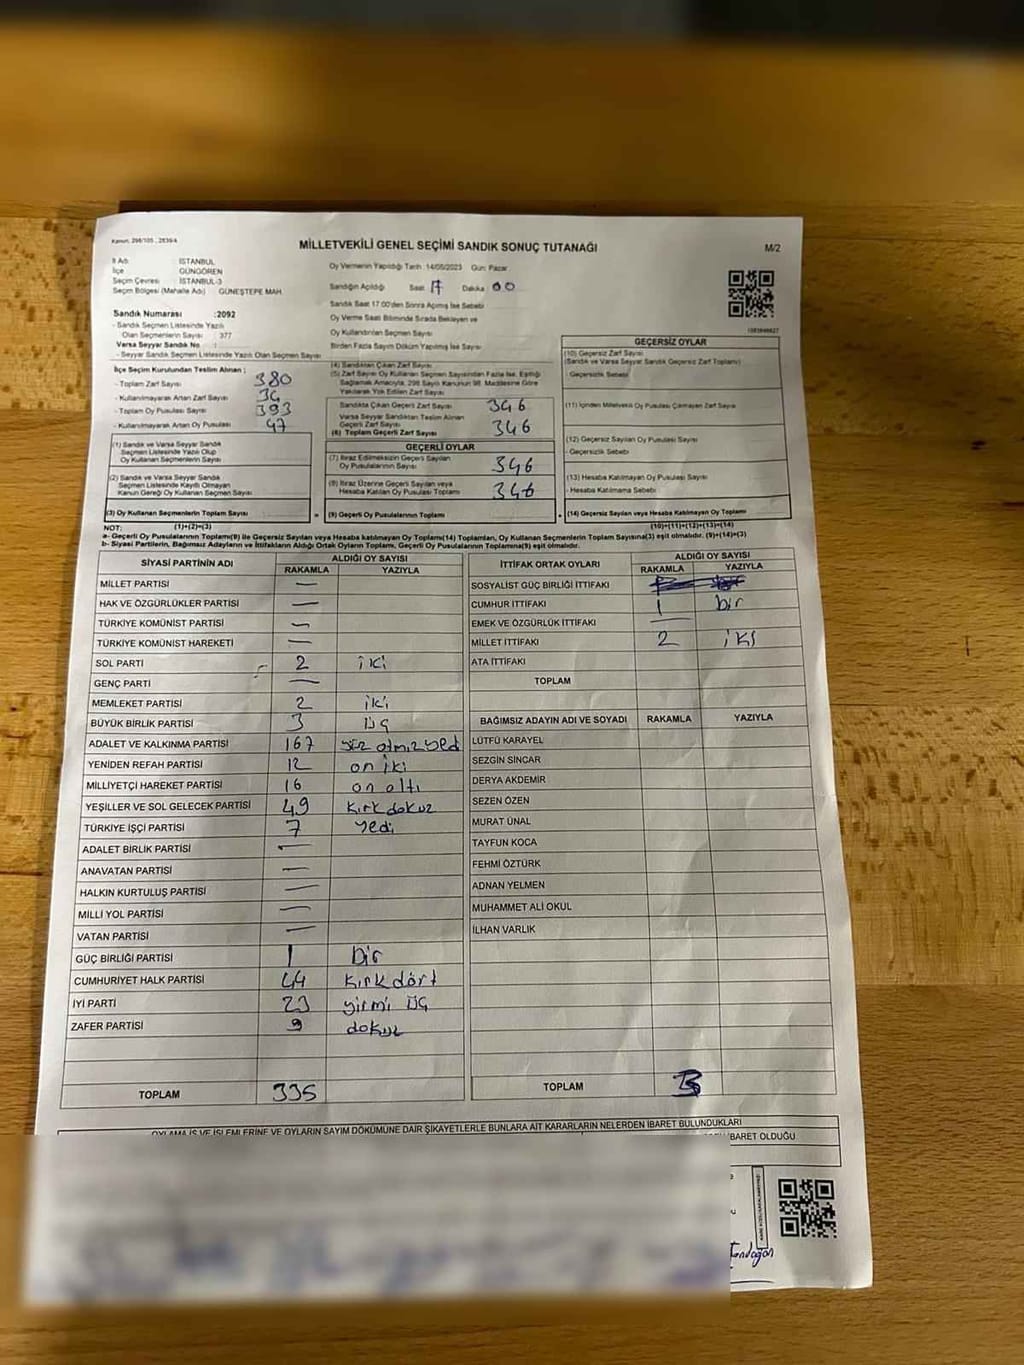 Kanun: 298/105 , 2839/4
MİLLETVEKİLİ GENEL SEÇİMİ SANDIK SONUÇ TUTANAĞI
M/2
İl Adı : İSTANBUL
İlçe : GÜNGÖREN
Seçim Çevresi : İSTANBUL-3
Seçim Bölgesi (Mahalle Adı) : GÜNEŞTEPE MAH.
Oy Vermenin Yapıldığı Tarih :14/05/2023 Gün: Pazar
Sandığın Açıldığı Saat 17 Dakika 00
Sandık Saat 17:00'den Sonra Açılmış İse Sebebi
Oy Verme Saati Bitiminde Sırada Bekleyen ve
Oy Kullandırılan Seçmen Sayısı
Birden Fazla Sayım Döküm Yapılmış İse Sayısı
Sandık Numarası :2092
- Sandık Seçmen Listesinde Yazılı
Olan Seçmenlerin Sayısı : 377
Varsa Seyyar Sandık No :
- Seyyar Sandık Seçmen Listesinde Yazılı Olan Seçmen Sayısı
İlçe Seçim Kurulundan Teslim Alınan ;
- Toplam Zarf Sayısı 380
- Kullanılmayarak Artan Zarf Sayısı 34
- Toplam Oy Pusulası Sayısı 393
- Kullanılmayarak Artan Oy Pusulası 47
(1) Sandık ve Varsa Seyyar Sandık
Seçmen Listesinde Yazılı Olup
Oy Kullanan Seçmenlerin Sayısı
(2) Sandık ve Varsa Seyyar Sandık
Seçmen Listesinde Kayıtlı Olmayan
Kanun Gereği Oy Kullanan Seçmen Sayısı
(3) Oy Kullanan Seçmenlerin Toplam Sayısı
(4) Sandıktan Çıkan Zarf Sayısı
(5) Zarf Sayısı Oy Kullanan Seçmen Sayısından Fazla İse, Eşitliği
Sağlamak Amacıyla, 298 Sayılı Kanunun 98. Maddesine Göre
Yakılarak Yok Edilen Zarf Sayısı
Sandıkta Çıkan Geçerli Zarf Sayısı 346
Varsa Seyyar Sandıktan Teslim Alınan
Geçerli Zarf Sayısı
(6) Toplam Geçerli Zarf Sayısı 346
GEÇERLİ OYLAR
(7) İtiraz Edilmeksizin Geçerli Sayılan
Oy Pusulalarının Sayısı 346
(8) İtiraz Üzerine Geçerli Sayılan veya
Hesaba Katılan Oy Pusulası Toplamı 346
(9) Geçerli Oy Pusulalarının Toplamı
GEÇERSİZ OYLAR
(10) Geçersiz Zarf Sayısı
(Sandık ve Varsa Seyyar Sandık Geçersiz Zarf Toplamı)
- Geçersizlik Sebebi
(11) İçinden Milletvekili Oy Pusulası Çıkmayan Zarf Sayısı
(12) Geçersiz Sayılan Oy Pusulası Sayısı
- Geçersizlik Sebebi
(13) Hesaba Katılmayan Oy Pusulası Sayısı
- Hesaba Katılmama Sebebi
(14) Geçersiz Sayılan veya Hesaba Katılmayan Oy Toplamı
NOT: (1)+(2)=(3) (10)+(11)+(12)+(13)=(14)
a- Geçerli Oy Pusulalarının Toplamı(9) ile Geçersiz Sayılan veya Hesaba katılmayan Oy Toplamı(14) Toplamları, Oy Kullanan Seçmenlerin Toplam Sayısına(3) eşit olmalıdır. (9)+(14)=(3)
b- Siyasi Partilerin, Bağımsız Adayların ve İttifakların Aldığı Ortak Oyların Toplamı, Geçerli Oy Pusulalarının Toplamına(9) eşit olmalıdır.
SİYASİ PARTİNİN ADI ALDIĞI OY SAYISI
RAKAMLA YAZIYLA
MİLLET PARTİSI —
HAK VE ÖZGÜRLÜKLER PARTİSİ —
TÜRKİYE KOMÜNİST PARTİSİ —
TÜRKİYE KOMÜNİST HAREKETİ —
SOL PARTİ 2 iki
GENÇ PARTİ —
MEMLEKET PARTİSİ 2 iki
BÜYÜK BİRLİK PARTİSİ 3 üç
ADALET VE KALKINMA PARTİSİ 167 yüz atmız yedi
YENİDEN REFAH PARTİSİ 12 on iki
MİLLİYETÇİ HAREKET PARTİSİ 16 on altı
YEŞİLLER VE SOL GELECEK PARTİSİ 49 kırk dokuz
TÜRKİYE İŞÇİ PARTİSİ 7 yedi
ADALET BİRLİK PARTİSİ —
ANAVATAN PARTİSİ —
HALKIN KURTULUŞ PARTİSİ —
MİLLİ YOL PARTİSİ —
VATAN PARTİSİ —
GÜÇ BİRLİĞİ PARTİSİ 1 bir
CUMHURİYET HALK PARTİSİ 44 kırk dört
İYİ PARTİ 23 yirmi üç
ZAFER PARTİSİ 9 dokuz
TOPLAM 335
İTTİFAK ORTAK OYLARI ALDIĞI OY SAYISI
RAKAMLA YAZIYLA
SOSYALİST GÜÇ BİRLİĞİ İTTİFAKI
CUMHUR İTTİFAKI 1 bir
EMEK VE ÖZGÜRLÜK İTTİFAKI —
MİLLET İTTİFAKI 2 iki
ATA İTTİFAKI
TOPLAM
BAĞIMSIZ ADAYIN ADI VE SOYADI RAKAMLA YAZIYLA
LÜTFÜ KARAYEL
SEZGİN SİNCAR
DERYA AKDEMİR
SEZEN ÖZEN
MURAT ÜNAL
TAYFUN KOCA
FEHMİ ÖZTÜRK
ADNAN YELMEN
MUHAMMET ALİ OKUL
İLHAN VARLIK
TOPLAM
OYLAMA İŞ VE İŞLEMLERİNE VE OYLARIN SAYIM DÖKÜMÜNE DAİR ŞİKAYETLERLE BUNLARA AİT KARARLARIN NELERDEN İBARET BULUNDUKLARI
BARET OLDUĞU